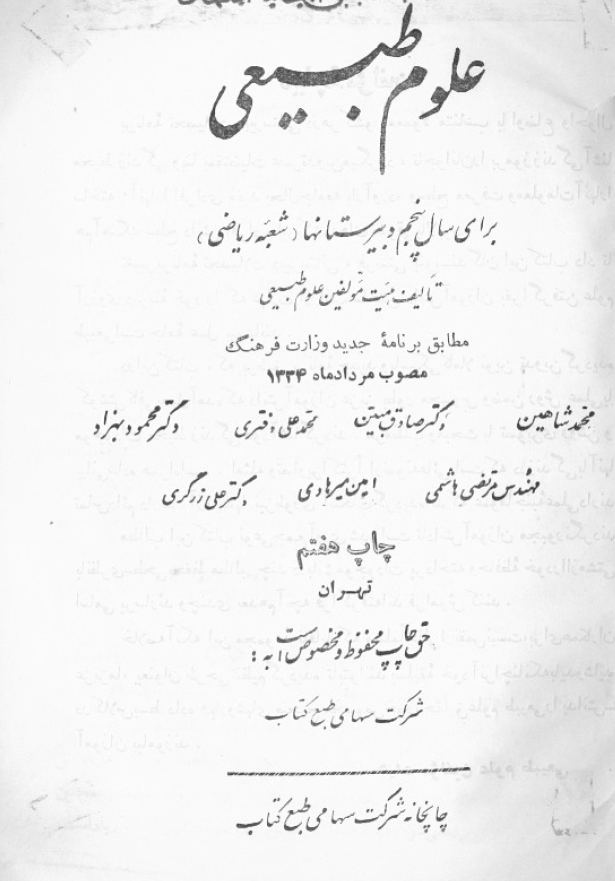 علوم طبیعی
برای سال پنجم دبیرستانها (شعبه ریاضی)
تألیف هیئت مؤلفین علوم طبیعی
مطابق برنامهٔ جدید وزارت فرهنگ
مصوب مردادماه ۱۳۳۴
محمد شاهین دکتر صادق مبین محمد علی دفتری دکتر محمود بهزاد
مهندس مرتضی هاشمی امین میرهادی دکتر علی زرگری
چاپ هفتم
تهران
حق چاپ محفوظ و مخصوص است به:
شرکت سهامی طبع کتاب
چاپخانه شرکت سهامی طبع کتاب